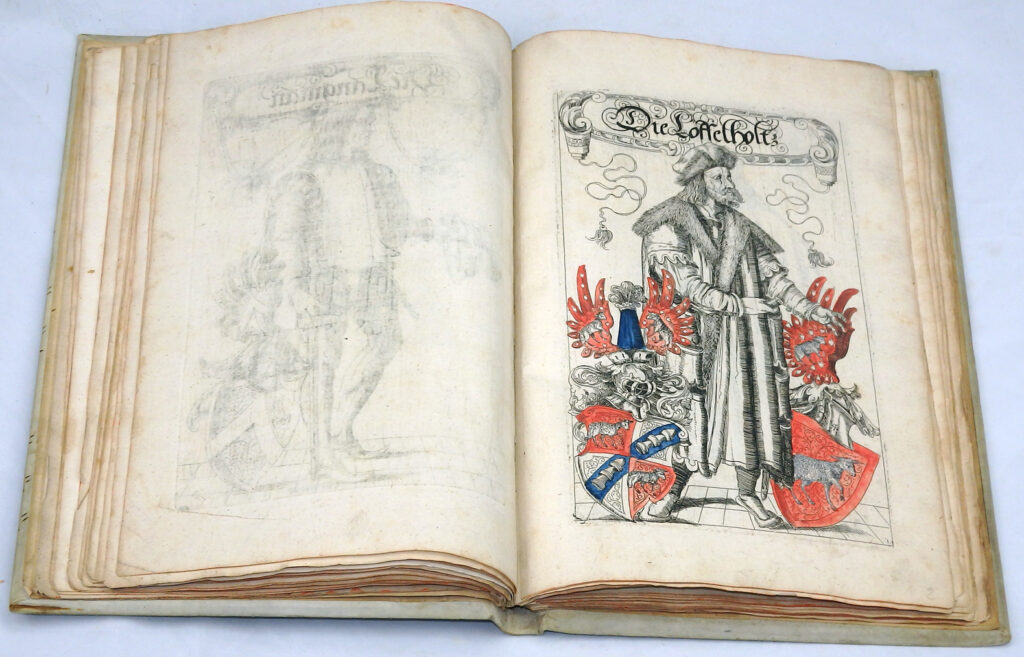 Die Loffelholtz